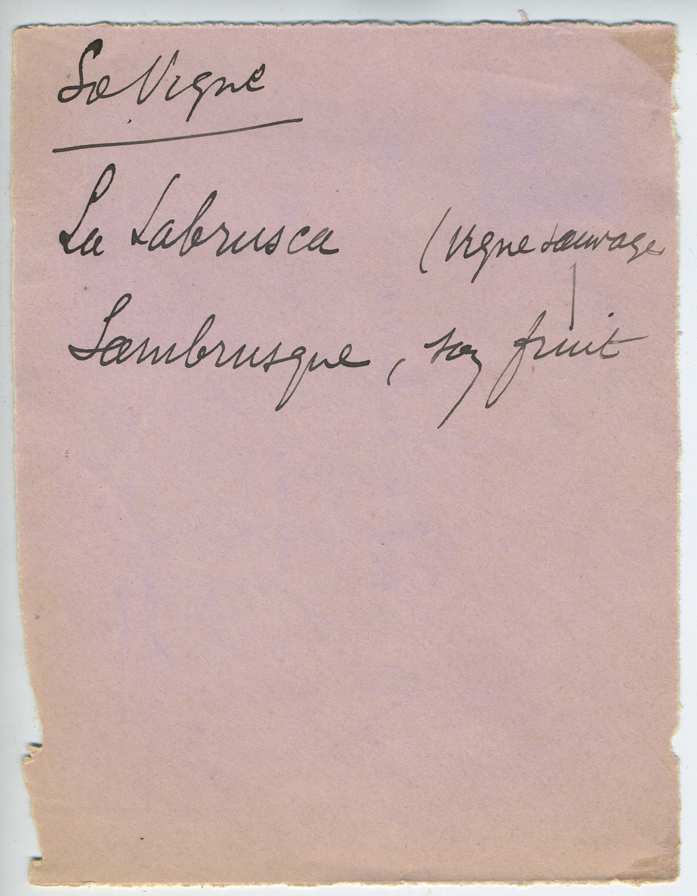 La Vigne
La Labrusca (vigne sauvage
Lambrusque, son fruit